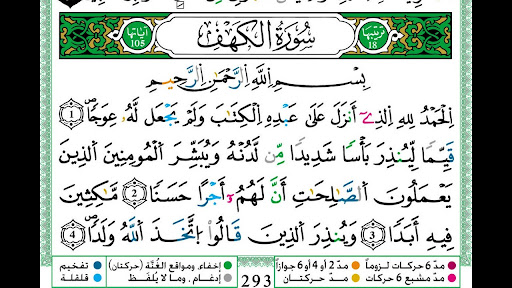 ترتيبها 18 سُورَةُ الكَهْفِ آياتها 105
بِسْمِ اللَّهِ الرَّحْمَٰنِ الرَّحِيمِ
اَلْحَمْدُ لِلهِ الذِےٓ أَنزَلَ عَلَىٰ عَبْدِهِ اِلْكِتَٰبَ وَلَمْ يَجْعَل لَّهُۥ عِوَجاًۖ 1
قَيِّماً لِّيُنذِرَ بَأْساً شَدِيداً مِّن لَّدُنْهُ وَيُبَشِّرَ اَلْمُومِنِينَ اَلذِينَ
يَعْمَلُونَ اَلصَّٰلِحَٰتِ أَنَّ لَهُمُۥٓ أَجْراً حَسَناً 2 مَّٰكِثِينَ
فِيهِ أَبَداً 3 وَيُنذِرَ اَلذِينَ قَالُواْ اُ۪تَّخَذَ اَللَّهُ وَلَداًۖ 4
مدّ 6 حركات لزوماً مدّ 2 أو 4 أو 6 جوازاً إخفاء، ومواقع الغُنَّة (حركتان) تفخيم
مدّ مشبع 6 حركات مدّ حركتان 293 إدغام، وما لا يُلفَظ قلقلة